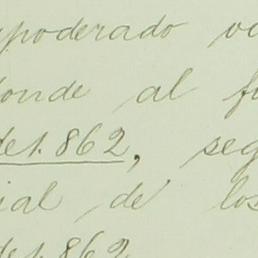 apoderado
donde al
de 1.862, seg
ial de los
de 1.862